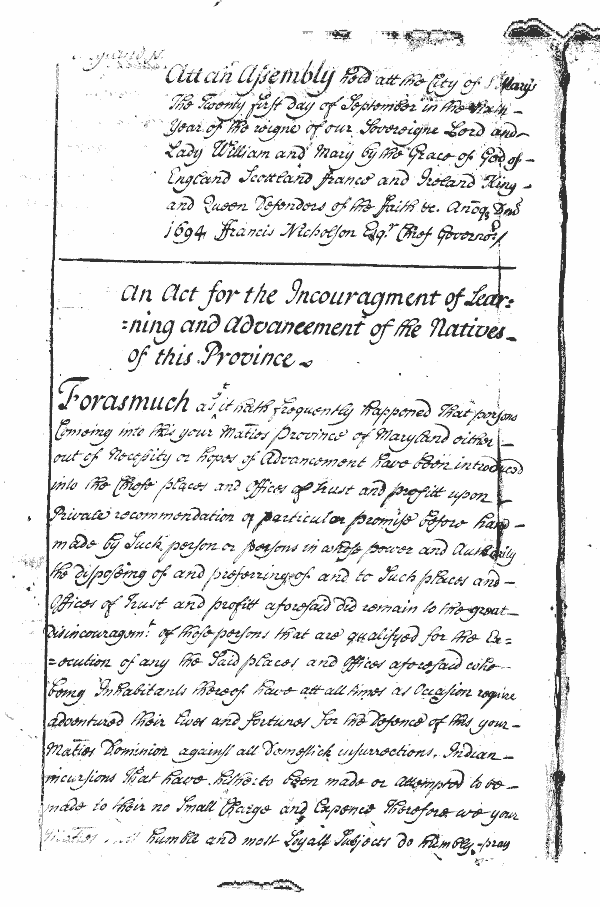 Att an Assembly held att the City of St Marys
The Twenty first day of September in the sixth
Year of the reigne of our Sovereigne Lord and
Lady William and Mary by the Grace of God of
England Scottland France and Ireland King
and Queen Defenders of the Faith &c. Anoq Dmi
1694 Francis Nicholson Esqr. Chief Governor
An Act for the Incouragment of Lear=
=ning and Advancement of the Natives
of this Province
Forasmuch as it hath frequently happened That persons
Comeing into this your Maties Province of Maryland either
out of Necessity or hopes of Advancement have been introduced
into the Chiefe places and Offices of trust and profitt upon
Private recommendation or particular promise before hand
made by Such person or persons in whose power and Authority
the disposeing of and preferring of and to Such places and
Offices of Trust and profitt aforesaid did remain to the great
Disincouragemt. of those persons that are qualifyed for the Ex=
=ecution of any the Said places and Offices aforesaid who
being Inhabitants thereof have att all times as Occasion require
adventured their Lives and fortunes for the Defence of this your
Maties Dominion against all Domestick insurrections, Indian
incursions That have hitherto been made or attempted to be
made to their no Small Charge and Expence Therefore we your
Maties most humble and most Loyall Subjects do humbly pray